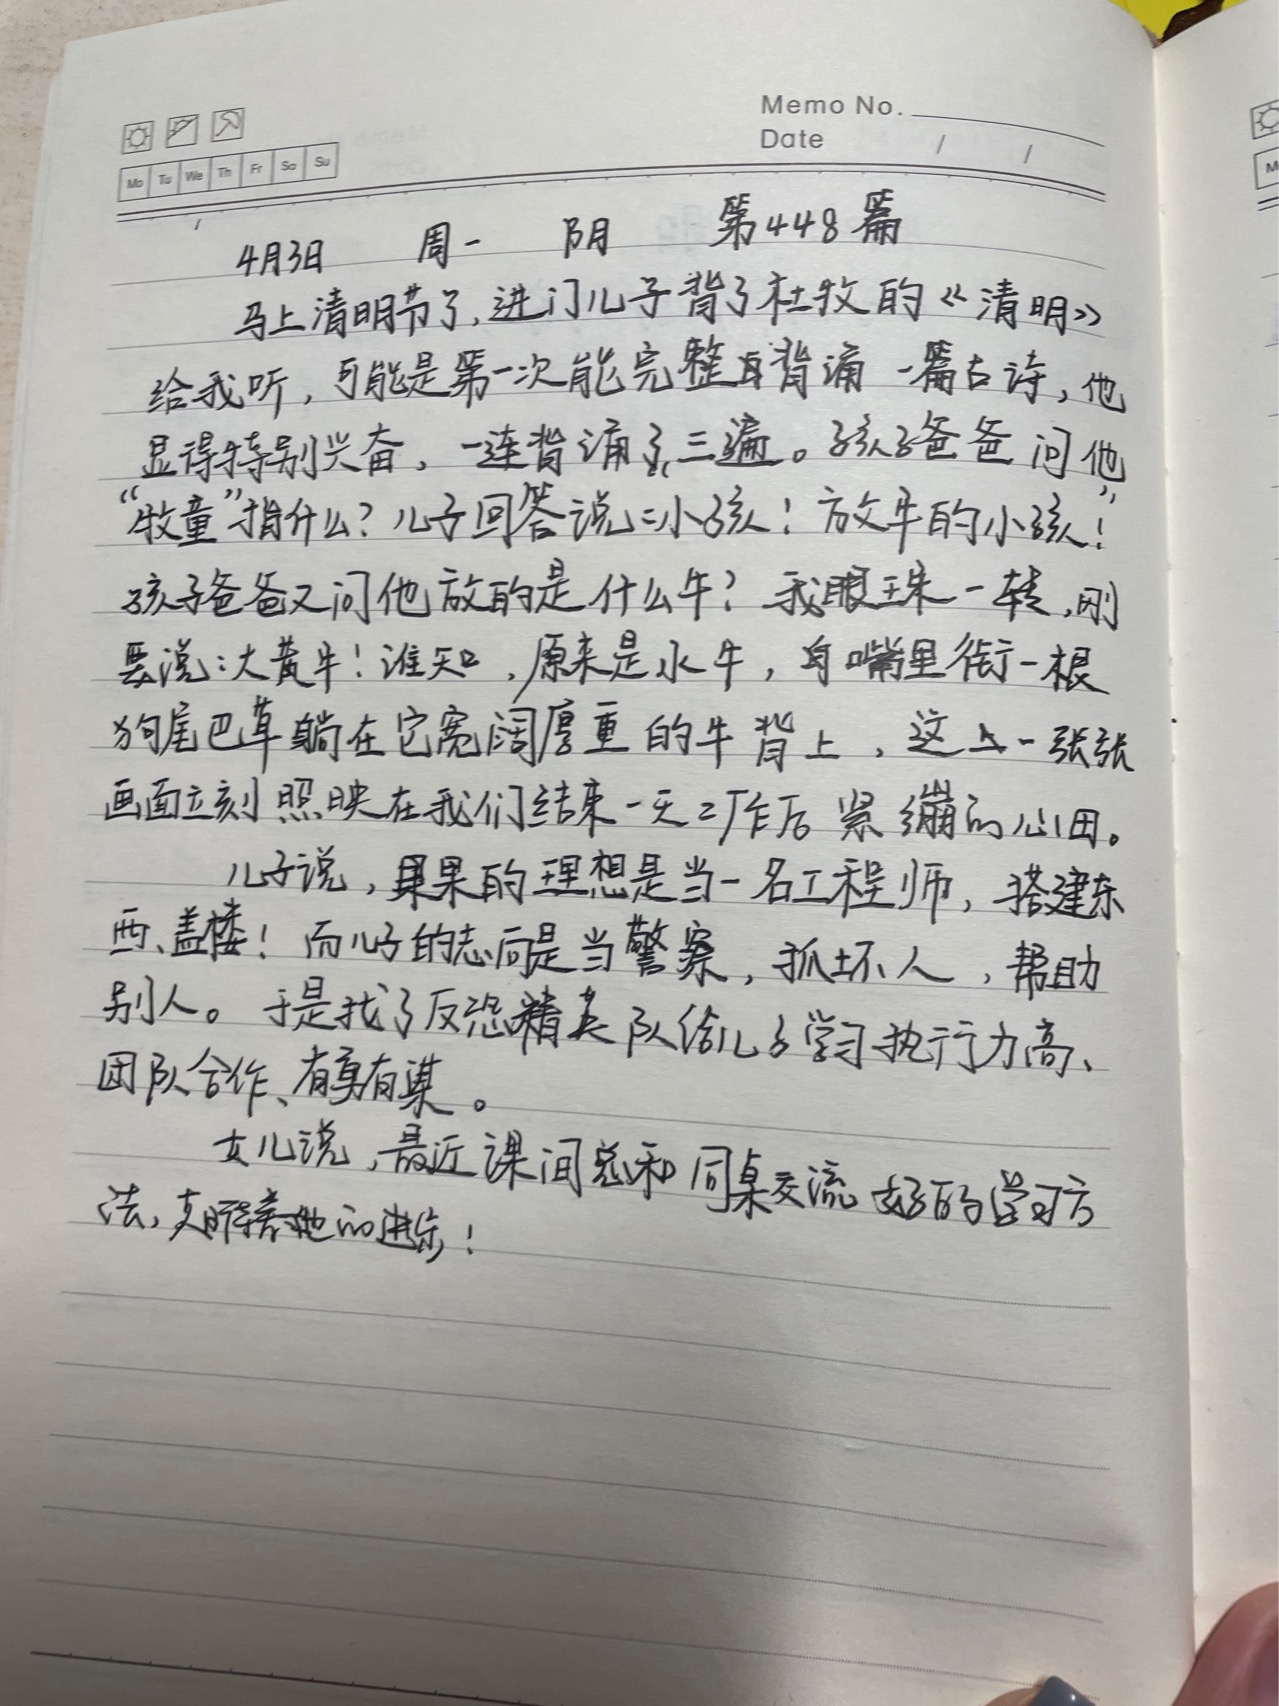 Memo No.
Date / /
Mo Tu We Th Fr Sa Su
4月3日 周一 阴 第448篇
马上清明节了,进门儿子背了杜牧的《清明》
给我听,可能是第一次能完整背诵一篇古诗,他
显得特别兴奋,一连背诵了三遍。孩子爸爸问他
“牧童”指什么?儿子回答说:小孩!放牛的小孩!”
孩子爸爸又问他放的是什么牛?我眼珠一转,刚
要说:大黄牛!谁知,原来是水牛,嘴里衔一根
狗尾巴草躺在它宽阔厚重的牛背上,这一张张
画面立刻照映在我们结束一天工作后紧绷的心田。
儿子说,果果的理想是当一名工程师,搭建东
西、盖楼!而儿子的志向是当警察,抓坏人,帮助
别人。于是找了反恐精英队给儿子学习执行力高、
团队合作、有勇有谋。
女儿说,最近课间总和同桌交流好的学习方
法,期待着她的进步!